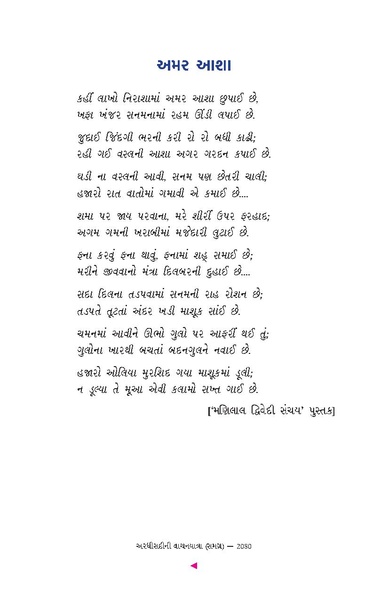 અમર આશા
કહીં લાખો નિરાશામાં અમર આશા છુપાઈ છે,
ખફા ખંજર સનમનામાં રહમ ઊંડી લપાઈ છે.
જુદાઈ જિંદગી ભરની કરી રો રો બધી કાઢી;
રહી ગઈ વસ્લની આશા અગર ગરદન કપાઈ છે.
ઘડી ના વસ્લની આવી, સનમ પણ છેતરી ચાલી;
હજારો રાત વાતોમાં ગમાવી એ કમાઈ છે....
શમા પર જાય પરવાના, મરે શીરીં ઉપર ફરહાદ;
અગમ ગમની ખરાબીમાં મજેદારી લુટાઈ છે.
ફના કરવું ફના થાવું, ફનામાં શહ્ સમાઈ છે;
મરીને જીવવાનો મંત્રા દિલબરની દુહાઈ છે....
સદા દિલના તડપવામાં સનમની રાહ રોશન છે;
તડપતે તૂટતાં અંદર ખડી માશૂક સાંઈ છે.
ચમનમાં આવીને ઊભો ગુલો પર આફરીં થઈ તું;
ગુલોના ખારથી બચતાં બદનગુલને નવાઈ છે.
હજારો ઓલિયા મુરશિદ ગયા માશૂકમાં ડૂલી;
ન ડૂલ્યા તે મૂઆ એવી કલામો સખ્ત ગાઈ છે.
['મણિલાલ દ્વિવેદી સંચય' પુસ્તક]
અરધીસદીની વાચનયાત્રા (સમગ્ર) — 2080